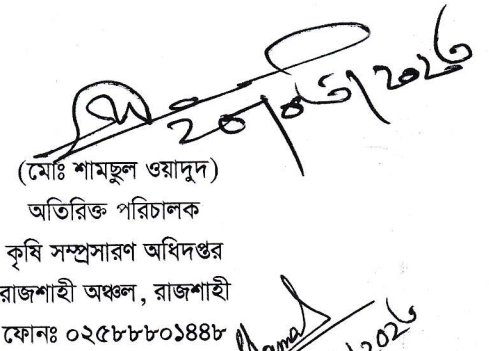 ২০/০৩/২০২৩
(মোঃ শামছুল ওয়াদুদ)
অতিরিক্ত পরিচালক
কৃষি সম্প্রসারণ অধিদপ্তর
রাজশাহী অঞ্চল, রাজশাহী
ফোনঃ ০২৫৮৮৮০১৪৪৮